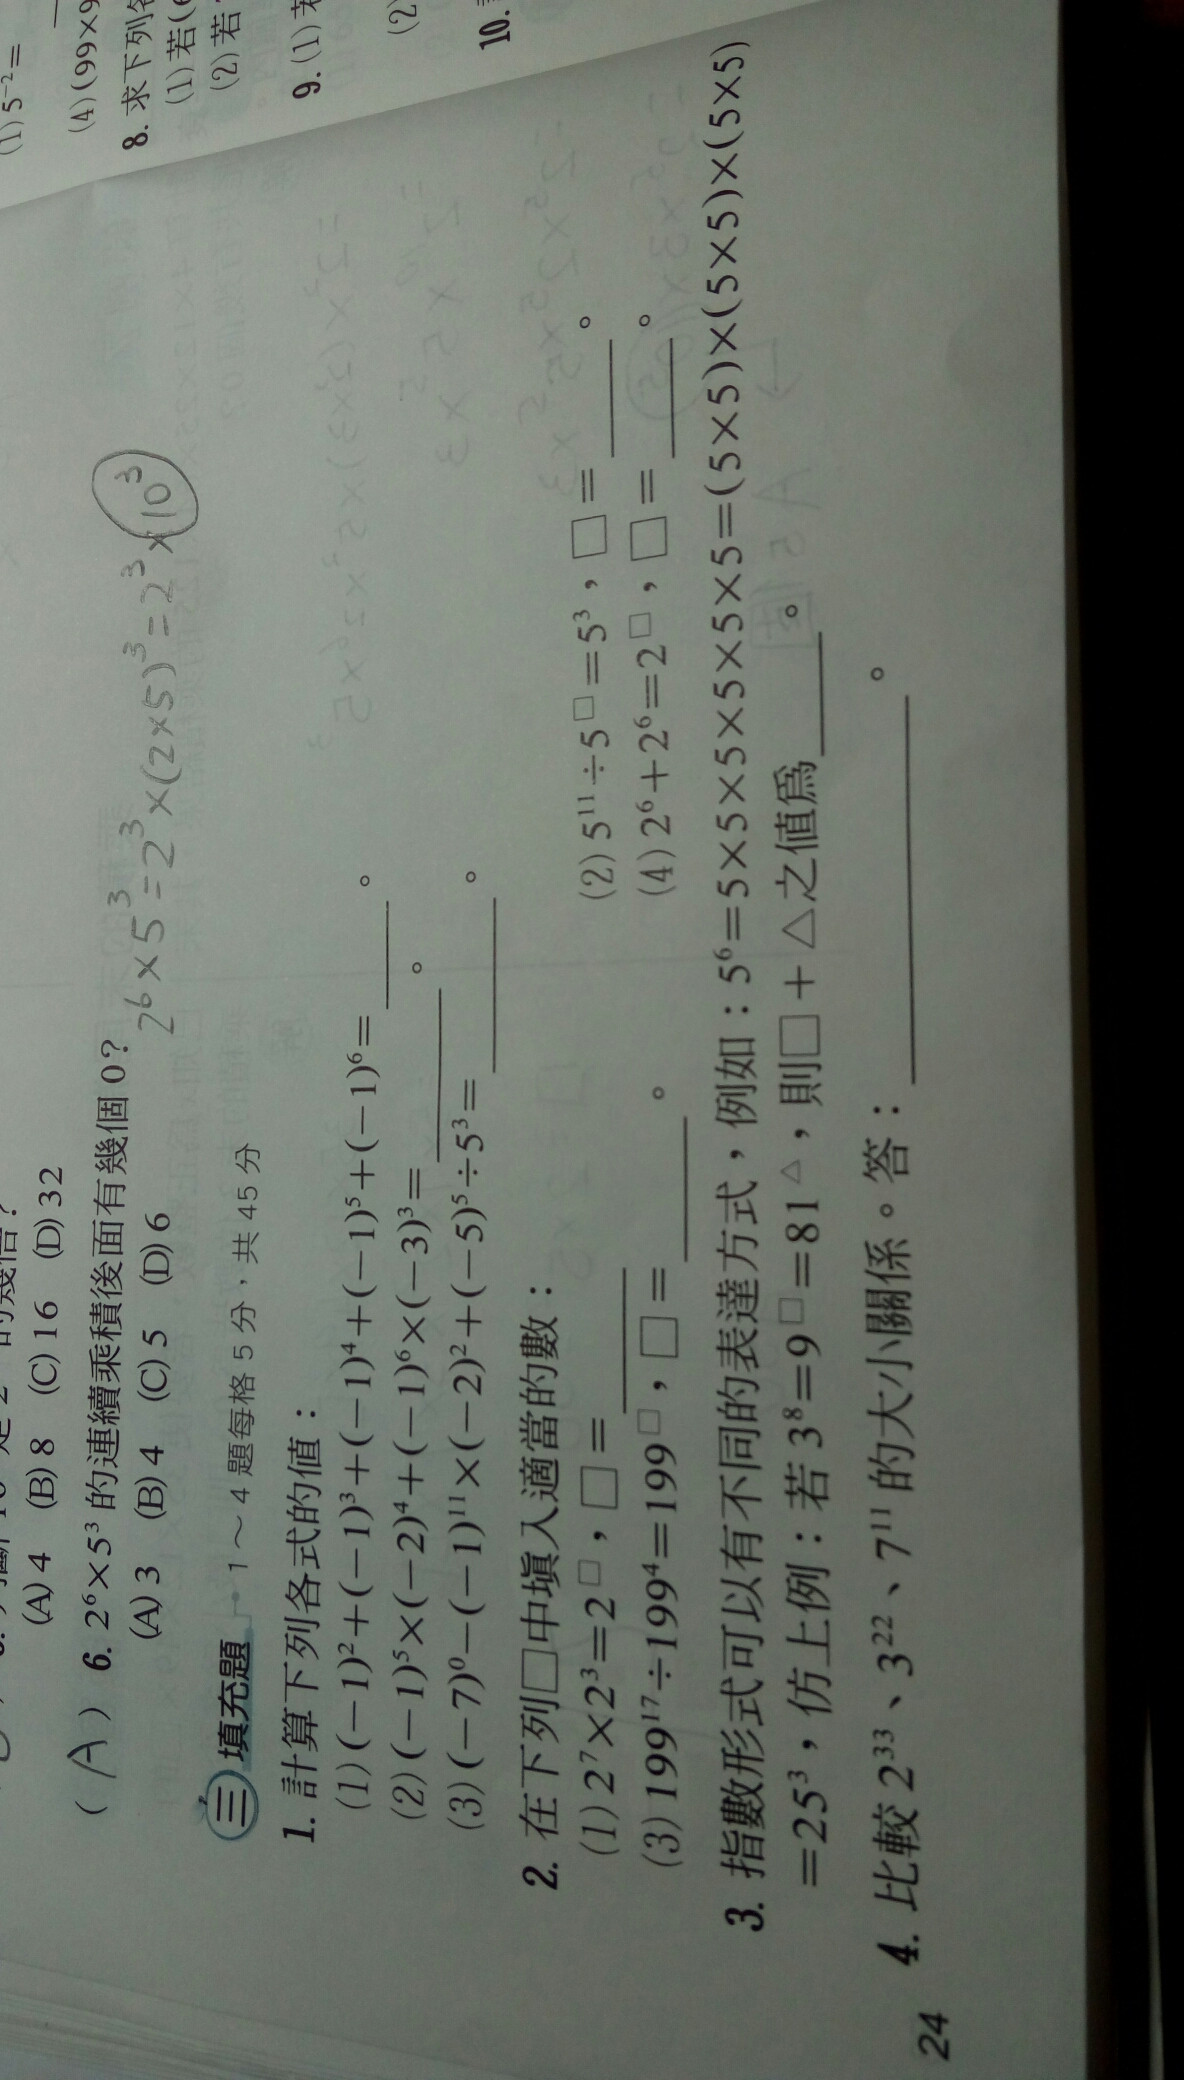 (A) 4 (B) 8 (C) 16 (D) 32
( A ) 6. 2⁶×5³ 的連續乘積後面有幾個 0?
2⁶×5³=2³×(2×5)³=2³×10³
(A) 3 (B) 4 (C) 5 (D) 6
三 填充題 1～4 題每格 5 分，共 45 分
1. 計算下列各式的值：
(1) (－1)²＋(－1)³＋(－1)⁴＋(－1)⁵＋(－1)⁶＝______。
(2) (－1)⁵×(－2)⁴＋(－1)⁶×(－3)³＝______。
(3) (－7)⁰－(－1)¹¹×(－2)²＋(－5)⁵÷5³＝______。
2. 在下列□中填入適當的數：
(1) 2⁷×2³＝2□，□＝______
(2) 5¹¹÷5□＝5³，□＝______。
(3) 199¹⁷÷199⁴＝199□，□＝______。
(4) 2⁶＋2⁶＝2□，□＝______。
3. 指數形式可以有不同的表達方式，例如：5⁶＝5×5×5×5×5×5＝(5×5)×(5×5)×(5×5)
＝25³，仿上例：若 3⁸＝9□＝81△，則□＋△之值爲______。
4. 比較 2³³、3²²、7¹¹ 的大小關係。答：______。
24
(1) 5⁻²＝
(4) (99×9
8. 求下列各
(1) 若(
(2) 若
9. (1) 若
(2)
10.